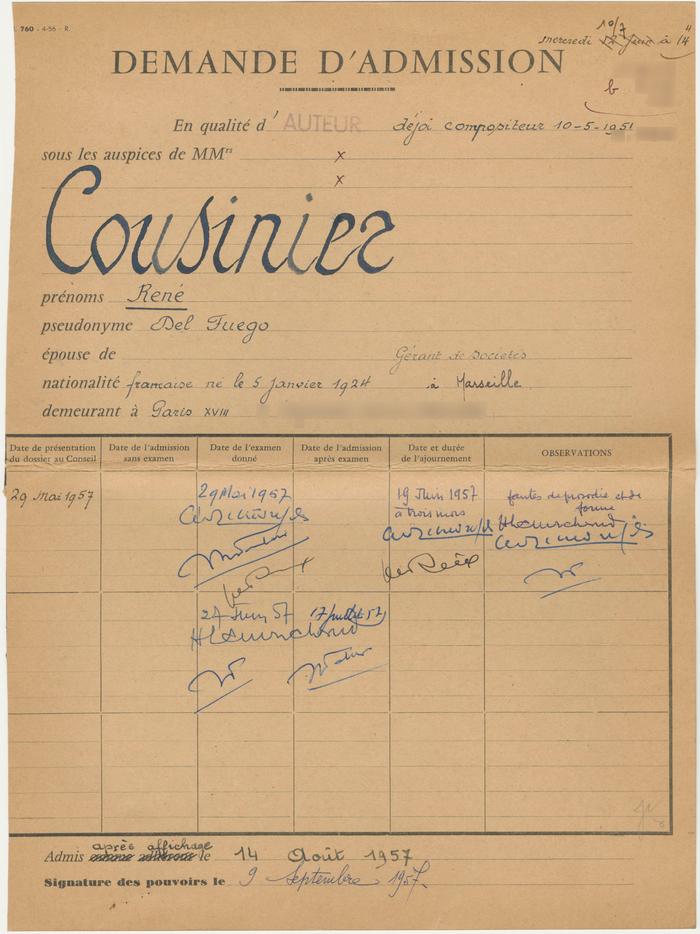 760 - 4-56 - R.
10/7
mercredi 12 juin à 14 "
DEMANDE D'ADMISSION
b
En qualité d' AUTEUR déjà compositeur 10-5-1951
sous les auspices de MMrs x
x
Cousinier
prénoms René
pseudonyme Del Fuego
épouse de Gérant de Sociétés
nationalité française né le 5 Janvier 1924 à Marseille.
demeurant à Paris XVIII
Date de présentation du dossier au Conseil
Date de l'admission sans examen
Date de l'examen donné
Date de l'admission après examen
Date et durée de l'ajournement
OBSERVATIONS
29 Mai 1957
29 Mai 1957
19 Juin 1957
à trois mois
fautes de prosodie et de
forme
24 Juin 57
17 juillet 57
après affichage
Admis le 14 Août 1957
Signature des pouvoirs le 9 Septembre 1957.